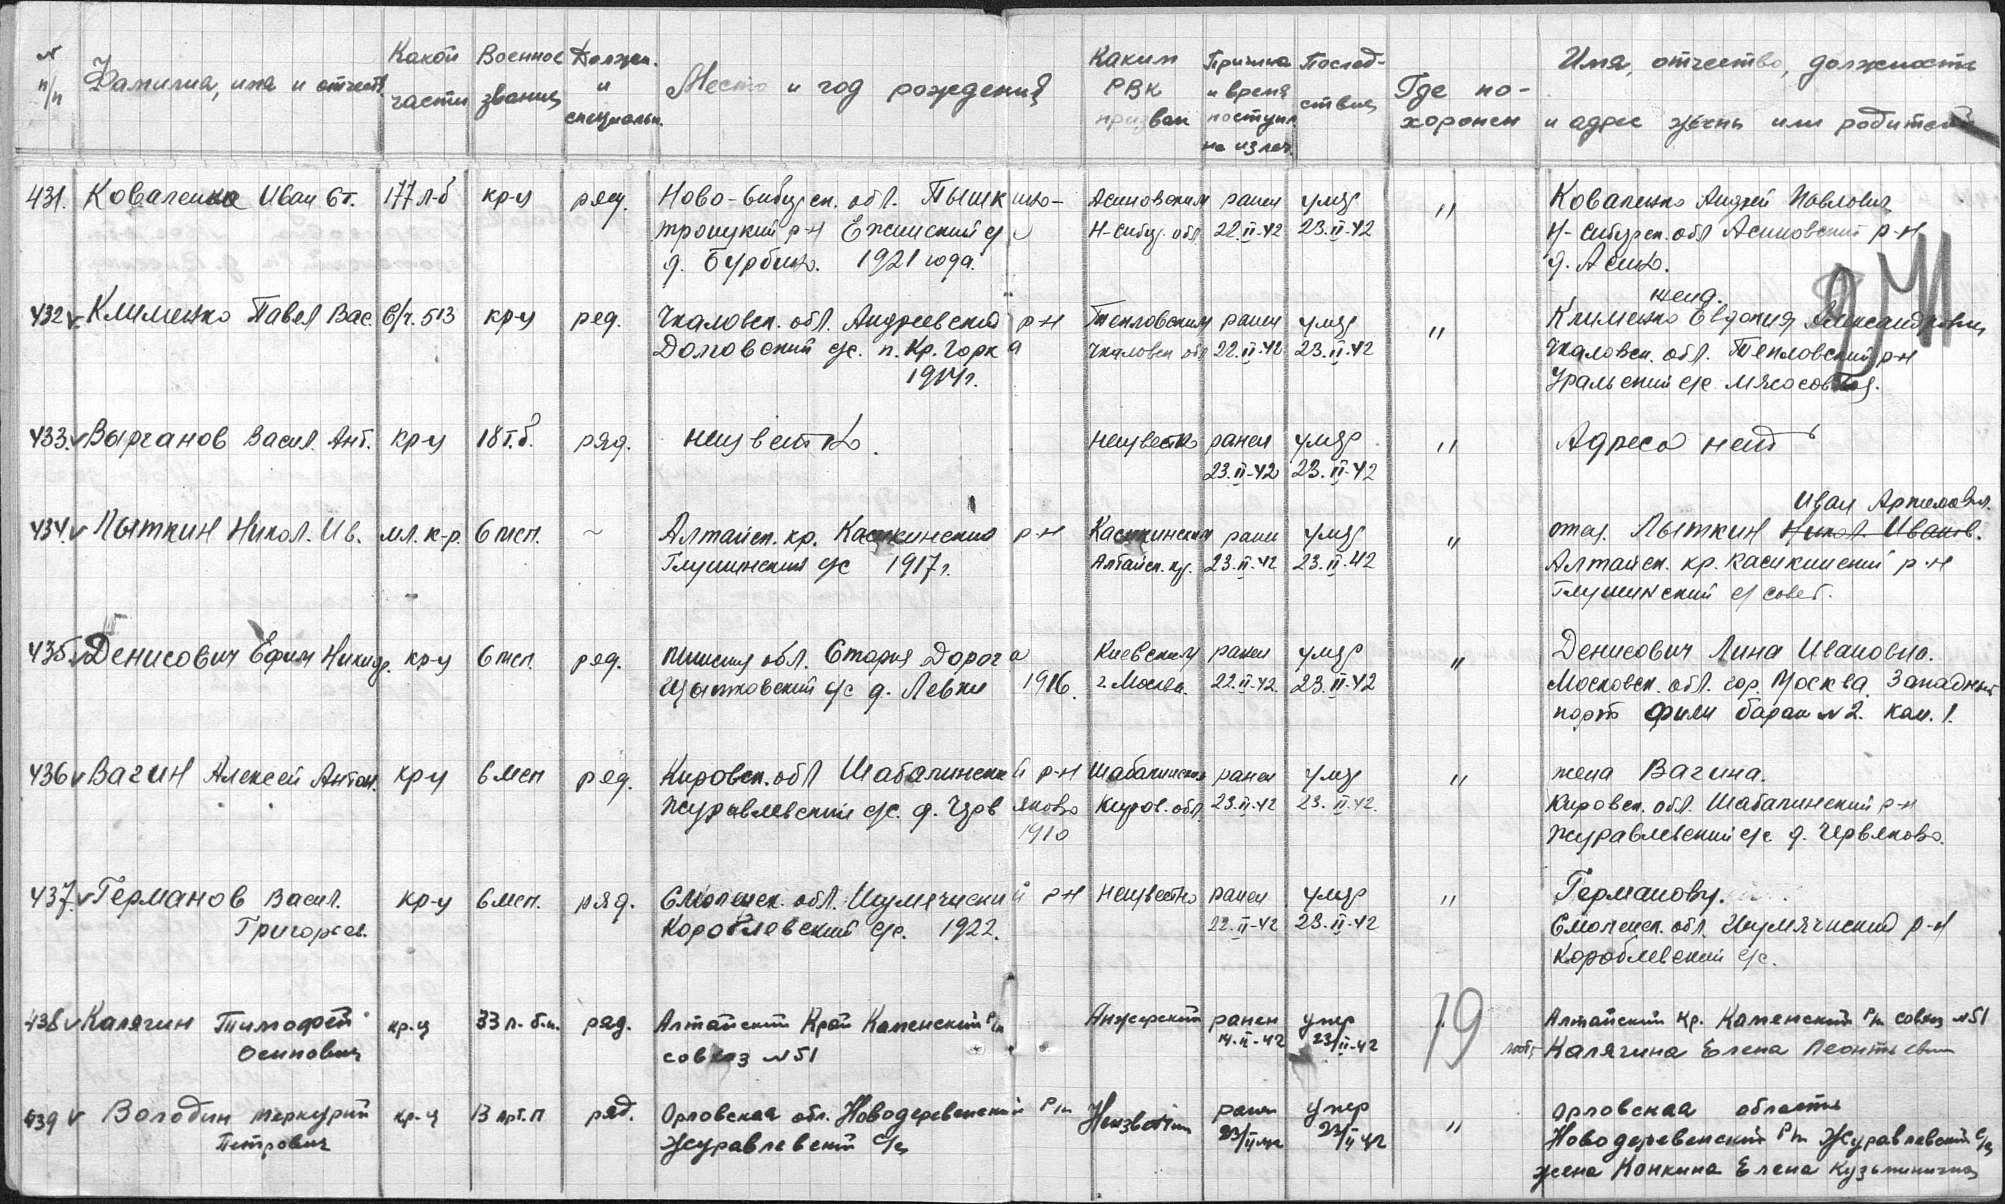 № п/п | Фамилия, имя и отчеств. | Какой части | Военное звание | Должн. и специальн. | Место и год рождения | Каким РВК призван | Причина и время поступл. на излеч. | Последствия | Где похоронен | Имя, отчество, должность и адрес жены или родителей
431. Коваленко Иван Ст. 177 л-б кр-ц ряд. Ново-Сибирск. обл. Пышкино- Асиновским ранен умер " Коваленко Андрей Павлович
троицкий р-н Ежинский с/с Н-Сибир. обл 22.II-42 23.II-42 Н-Сибирск. обл Асиновский р-н
д. Бурбино. 1921 года. д. Асино.
жена.
432 Клименко Павел Вас. В/ч. 513 кр-ц ряд. Чкаловск. обл. Андреевский р-н Тепловским ранен умер " Клименко Евдокия Александровна
Долговский с/с. п. Кр. Горка Чкаловск обл 22.II-42 23.II-42 Чкаловск. обл. Тепловский р-н
Уральский с/с.
433. Вырганов Васил. Ант. кр-ц 18 т.б. ряд. неизвестно. неизвестно ранен умер " Адреса нет
23.II-42 23.II-42
Иван Артемов.
434. Пыткин Никол. Ив. мл. к-р. 6 мсп. ~ Алтайск. кр. Касихинский р-н Касихинским ранен умер " отец. Пыткин Никол. Иванов.
Глушинский с/с 1917 г. Алтайск. кр. 23.II-42 23.II-42 Алтайск. кр. Касихинский р-н
Глушинский с/совет.
435. Денисович Ефим Никиф. кр-ц 6 мсп. ряд. Минская обл. Старая Дорога Киевским ранен умер " Денисович Лина Ивановна.
с/с д. Левки 1916. г. Москва. 22.II-42. 23.II-42 Московск. обл. гор. Москва. Западный
порт Фили барак №2. ком. 1.
436 Вагин Алексей Антон. кр-ц 6 мсп ряд. Кировск. обл Шабалинский р-н Шабалинским ранен умер " жена Вагина.
Журавлевский с/с. д. Червяково Киров. обл. 23.II-42 23.II-42. Кировск. обл. Шабалинский р-н
1910 Журавлевский с/с д. Червяково.
437. Германов Васил. кр-ц 6 мсп. ряд. Смоленск. обл. Шумячиский р-н неизвестно ранен умер " Германову.
Григорьев. Короблевский с/с. 1922. 22.II-42 23.II-42 Смоленск. обл. Шумячиский р-н
Короблевский с/с.
438 Калягин Тимофей кр-ц 33 л. б-н. ряд. Алтайский Край Каменский р/н Анжерский ранен умер 19 Алтайский кр. Каменский р/н совхоз №51
Осипович совхоз №51 14.II-42 23/II-42 Калягина Елена Леонтьевна
439 Володин Меркурий кр-ц 13 арт. п ряд. Орловская обл. Новодеревенский р/н Неизвестн ранен умер " Орловская область
Петрович Журавлевский с/с 23/II-42 23/II 42 Новодеревенский р/н Журавлевский с/с
жена Конкина Елена Кузьминична